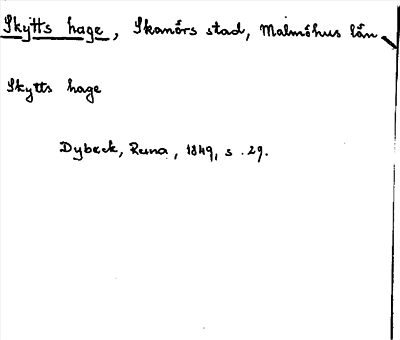 Skytts hage, Skanörs stad, Malmöhus län
Skytts hage
Dybeck, Runa, 1849, s. 29.